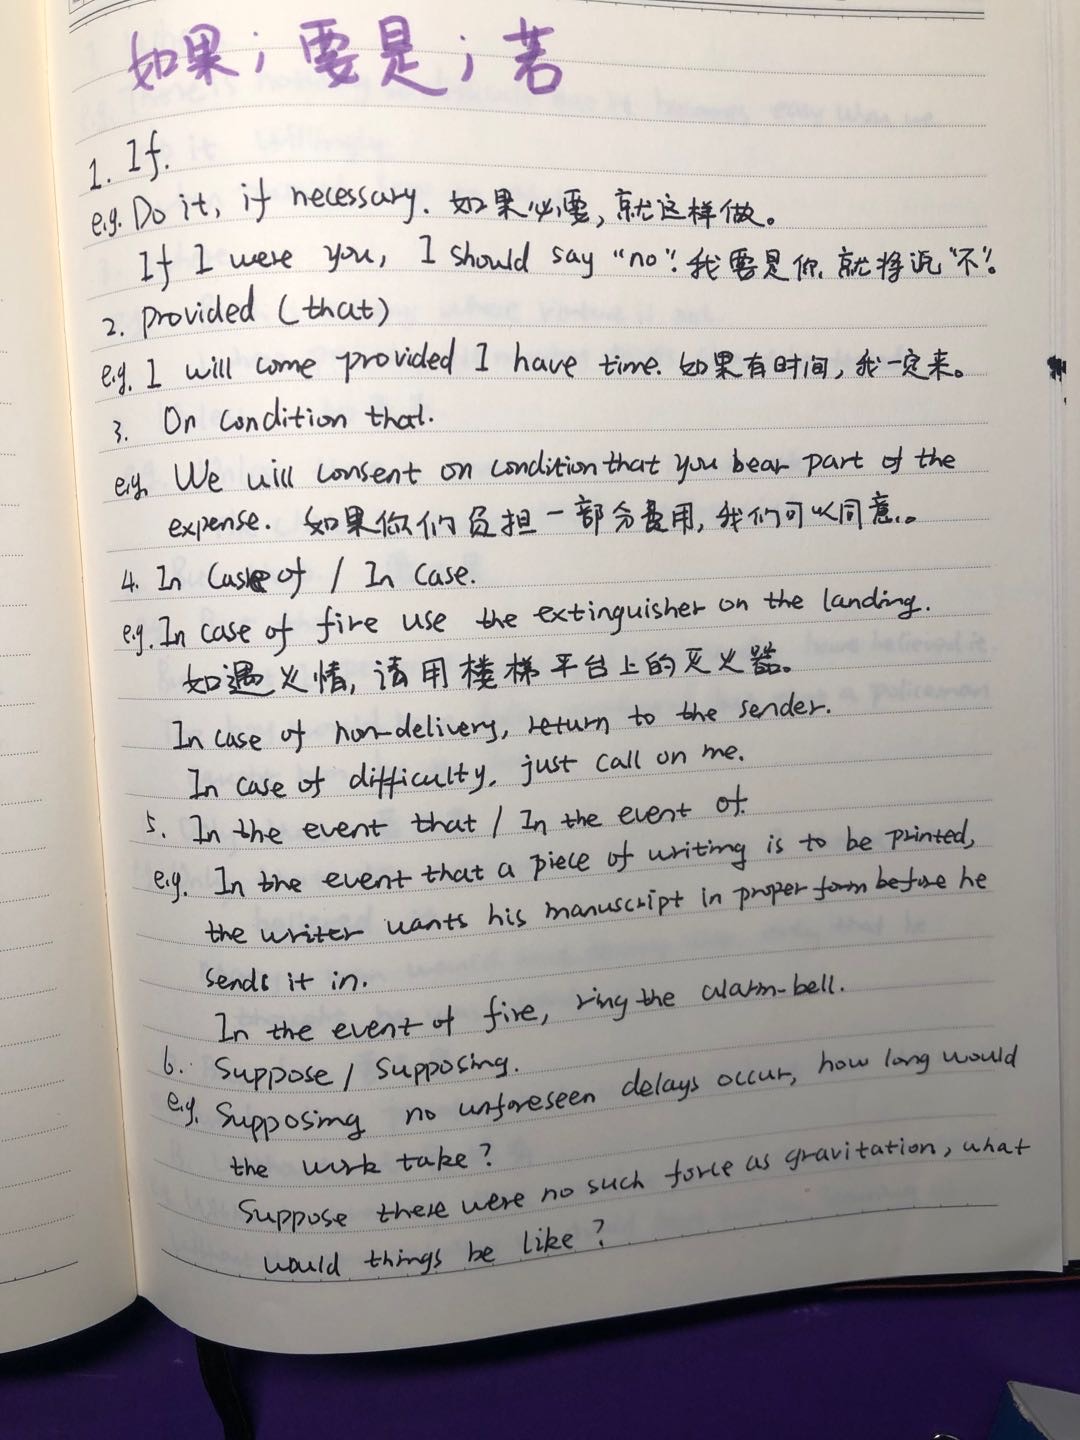 如果；要是；若
1. If.
e.g. Do it, if necessary. 如果必要，就这样做。
If I were you, I should say "no". 我要是你，就将说"不"。
2. Provided (that)
e.g. I will come provided I have time. 如果有时间，我一定来。
3. On condition that.
e.g. We will consent on condition that you bear part of the
expense. 如果你们负担一部分费用，我们可以同意。
4. In case of / In case.
e.g. In case of fire use the extinguisher on the landing.
如遇火情，请用楼梯平台上的灭火器。
In case of non-delivery, return to the sender.
In case of difficulty, just call on me.
5. In the event that / In the event of.
e.g. In the event that a piece of writing is to be printed,
the writer wants his manuscript in proper form before he
sends it in.
In the event of fire, ring the alarm-bell.
6. Suppose / Supposing.
e.g. Supposing no unforeseen delays occur, how long would
the work take?
Suppose there were no such force as gravitation, what
would things be like?